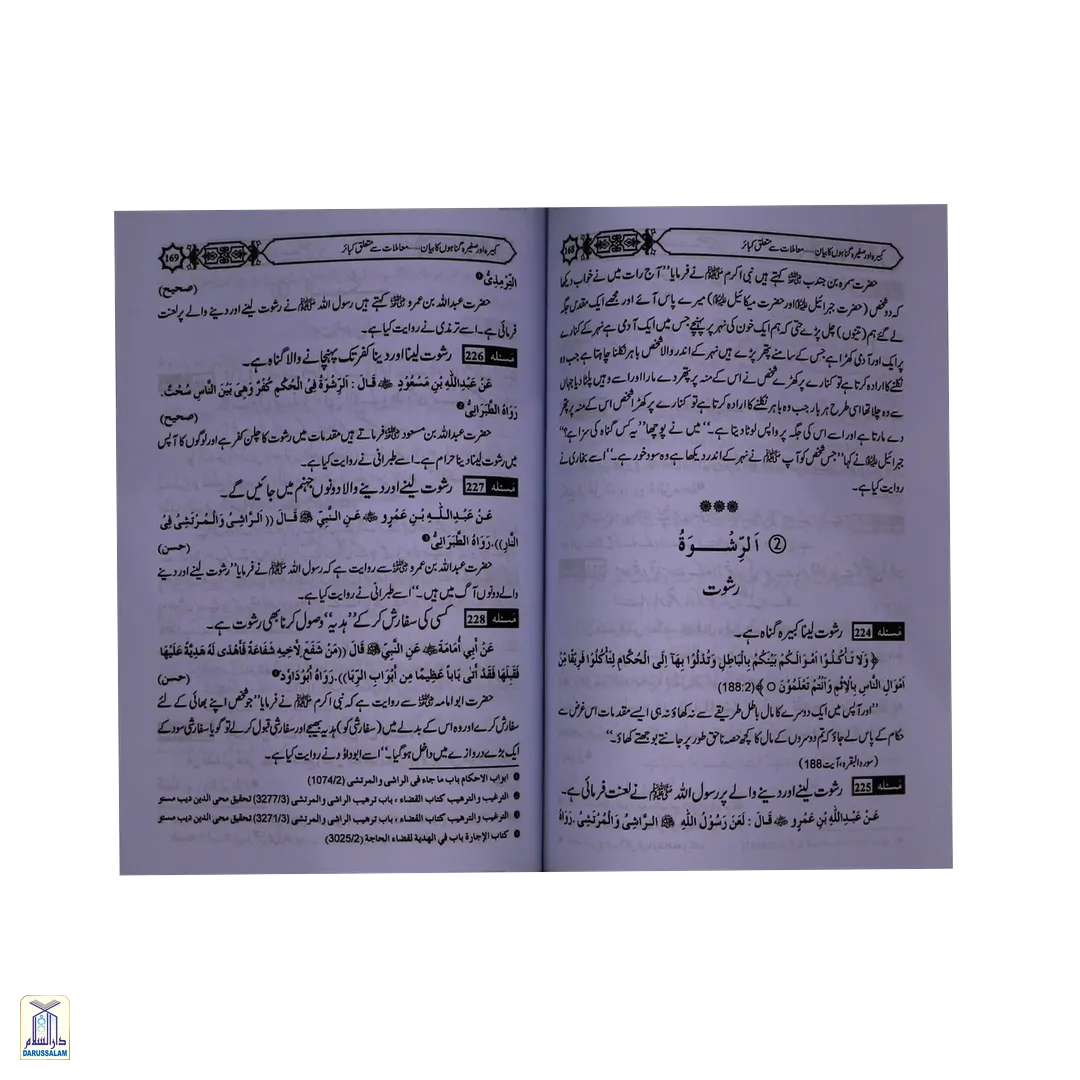 کبیرہ اور صغیرہ گناہوں کا بیان.....معاملات سے متعلق کبائر
168
حضرت سمرہ بن جندب رضی اللہ عنہ کہتے ہیں نبی اکرم ﷺ نے فرمایا ’’آج رات میں نے خواب دیکھا
کہ دو شخص (حضرت جبرائیل علیہ السلام اور حضرت میکائیل علیہ السلام) میرے پاس آئے اور مجھے ایک مقدس جگہ
لے گئے ہم (تینوں) چل پڑے حتی کہ ہم ایک خون کی نہر پر پہنچے جس میں ایک آدمی ہے نہر کے کنارے
پر ایک اور آدمی کھڑا ہے جس کے سامنے پتھر پڑے ہیں نہر کے اندر والا شخص باہر نکلنا چاہتا ہے جب وہ
نکلنے کا ارادہ کرتا ہے تو کنارے پر کھڑے شخص نے اس کے منہ پر پتھر دے مارا اور اسے وہیں پلٹا دیا جہاں
سے وہ چلا تھا اسی طرح ہر بار جب وہ باہر نکلنے کا ارادہ کرتا ہے تو کنارے پر کھڑا شخص اس کے منہ پر پتھر
دے مارتا ہے اور اسے اس کی جگہ پر واپس لوٹا دیتا ہے۔‘‘ میں نے پوچھا ’’یہ کس گناہ کی سزا ہے؟‘‘
جبرائیل علیہ السلام نے کہا ’’جس شخص کو آپ ﷺ نے نہر کے اندر دیکھا ہے وہ سود خور ہے۔‘‘ اسے بخاری نے
روایت کیا ہے۔
② اَلرِّشْوَةُ
رشوت
مسئله 224 رشوت لینا کبیرہ گناہ ہے۔
﴿ وَلَا تَأْكُلُوْا اَمْوَالَكُمْ بَيْنَكُمْ بِالْبَاطِلِ وَتُدْلُوْا بِهَا اِلَى الْحُكَّامِ لِتَأْكُلُوْا فَرِيْقًا مِّنْ
اَمْوَالِ النَّاسِ بِالْاِثْمِ وَاَنْتُمْ تَعْلَمُوْنَ ○ ﴾(188:2)
’’اور آپس میں ایک دوسرے کا مال باطل طریقے سے نہ کھاؤ نہ ہی ایسے مقدمات اس غرض سے
حکام کے پاس لے جاؤ کہ تم دوسروں کے مال کا کچھ حصہ ناحق طور پر جانتے بوجھتے کھاؤ۔‘‘
(سورہ البقرہ، آیت 188)
مسئله 225 رشوت لینے اور دینے والے پر رسول اللہ ﷺ نے لعنت فرمائی ہے۔
عَنْ عَبْدِاللّٰهِ بْنِ عَمْرٍو ﷺ قَالَ : لَعَنَ رَسُوْلُ اللّٰهِ ﷺ الرَّاشِيْ وَالْمُرْتَشِيْ. رَوَاهُ
کبیرہ اور صغیرہ گناہوں کا بیان.....معاملات سے متعلق کبائر
169
التِّرْمِذِيُّ ❶ (صحيح)
حضرت عبداللہ بن عمرو رضی اللہ عنہ کہتے ہیں رسول اللہ ﷺ نے رشوت لینے اور دینے والے پر لعنت
فرمائی ہے۔ اسے ترمذی نے روایت کیا ہے۔
مسئله 226 رشوت لینا اور دینا کفر تک پہنچانے والا گناہ ہے۔
عَنْ عَبْدِاللّٰهِ بْنِ مَسْعُوْدٍ رضی اللہ عنہ قَالَ : اَلرِّشْوَةُ فِي الْحُكْمِ كُفْرٌ وَهِيَ بَيْنَ النَّاسِ سُحْتٌ.
رَوَاهُ الطَّبَرَانِيُّ ❷ (صحيح)
حضرت عبداللہ بن مسعود رضی اللہ عنہ فرماتے ہیں مقدمات میں رشوت کا چلن کفر ہے اور لوگوں کا آپس
میں رشوت لینا دینا حرام ہے۔ اسے طبرانی نے روایت کیا ہے۔
مسئله 227 رشوت لینے اور دینے والا دونوں جہنم میں جائیں گے۔
عَنْ عَبْدِاللّٰهِ بْنِ عَمْرٍو رضی اللہ عنہ عَنِ النَّبِيِّ ﷺ قَالَ (( اَلرَّاشِيْ وَالْمُرْتَشِيْ فِي
النَّارِ)). رَوَاهُ الطَّبَرَانِيُّ ❸ (حسن)
حضرت عبداللہ بن عمرو رضی اللہ عنہ سے روایت ہے کہ رسول اللہ ﷺ نے فرمایا ’’رشوت لینے اور دینے
والے دونوں آگ میں ہیں۔‘‘ اسے طبرانی نے روایت کیا ہے۔
مسئله 228 کسی کی سفارش کر کے ’’ہدیہ‘‘ وصول کرنا بھی رشوت ہے۔
عَنْ أَبِي أُمَامَةَ رضی اللہ عنہ عَنِ النَّبِيِّ ﷺ قَالَ ((مَنْ شَفَعَ لِأَخِيهِ شَفَاعَةً فَأَهْدَى لَهُ هَدِيَّةً عَلَيْهَا
فَقَبِلَهَا فَقَدْ أَتَى بَابًا عَظِيمًا مِنْ أَبْوَابِ الرِّبَا)). رَوَاهُ أَبُوْدَاوُدَ ❹ (حسن)
حضرت ابو امامہ رضی اللہ عنہ سے روایت ہے کہ نبی اکرم ﷺ نے فرمایا ’’جو شخص اپنے بھائی کے لئے
سفارش کرے اور وہ اس کے بدلے میں (سفارشی کو) ہدیہ بھیجے اور سفارشی قبول کر لے تو گویا سفارشی سود کے
ایک بڑے دروازے میں داخل ہو گیا۔‘‘ اسے ابوداؤد نے روایت کیا ہے۔
❶ ابواب الاحكام باب ما جاء في الراشي والمرتشي (1074/2)
❷ الترغيب والترهيب كتاب القضاء ، باب ترهيب الراشي والمرتشي (3277/3) تحقيق محي الدين ديب مستو
❸ الترغيب والترهيب كتاب القضاء ، باب ترهيب الراشي والمرتشي (3271/3) تحقيق محي الدين ديب مستو
❹ كتاب الإجارة باب في الهدية لقضاء الحاجة (3025/2)
دارالسلام
DARUSSALAM